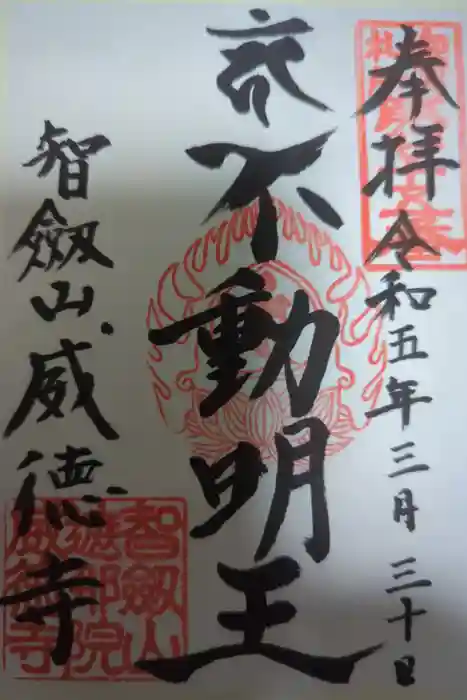 奉拝 令和五年三月三十日
不動明王
智劔山 威徳寺
智劔山
阿遮院
威徳寺